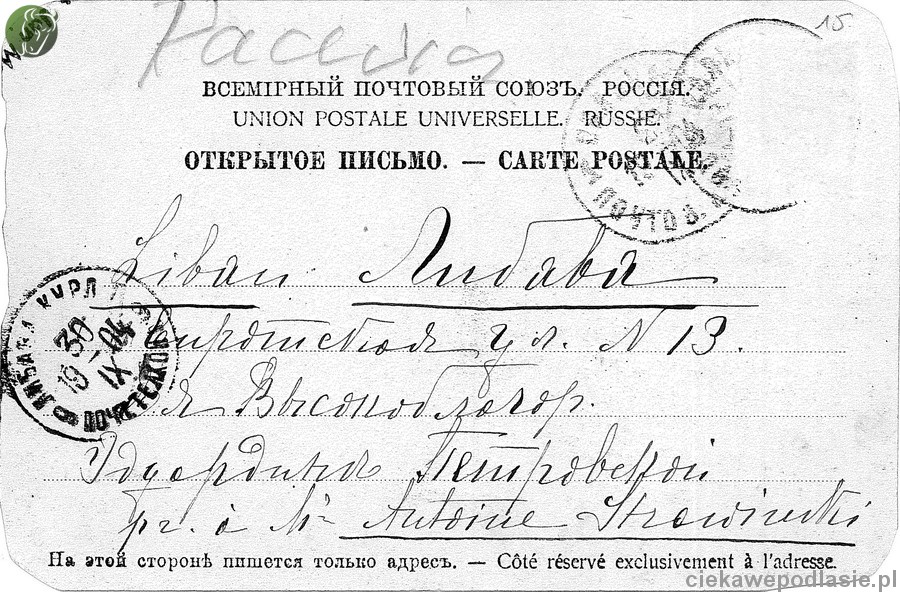 15.
ВСЕМІРНЫЙ ПОЧТОВЫЙ СОЮЗЪ. РОССІЯ.
UNION POSTALE UNIVERSELLE. RUSSIE.
ОТКРЫТОЕ ПИСЬМО. — CARTE POSTALE.
Libau Либава
ул. N 13.
Высокоблагор.
Петровской
pr. à Mr Antoine Strawinski
ЛИБАВА КУРЛ.
30
IX 04
19
На этой сторонѣ пишется только адресъ. — Côté réservé exclusivement à l'adresse.
ciekawepodlasie.pl